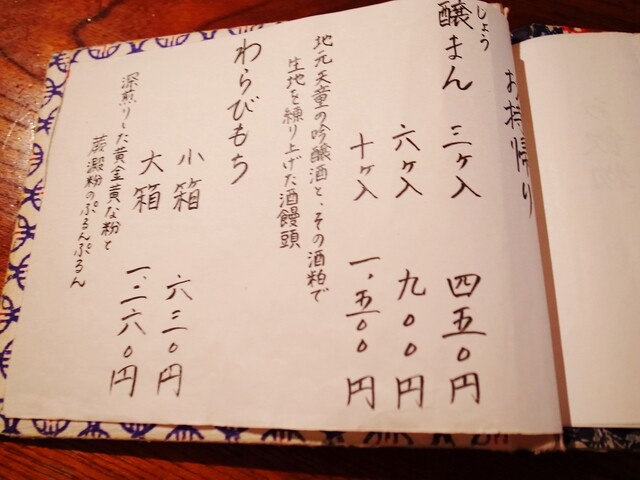 お持帰り
じょう
醸まん 三ヶ入 四五〇円
六ヶ入 九〇〇円
十ヶ入 一、五〇〇円
地元天童の吟醸酒と、その酒粕で
生地を練り上げた酒饅頭
わらびもち
小箱 六三〇円
大箱 一、二六〇円
深煎りした黄金黄な粉と
蕨澱粉のぷるんぷるん